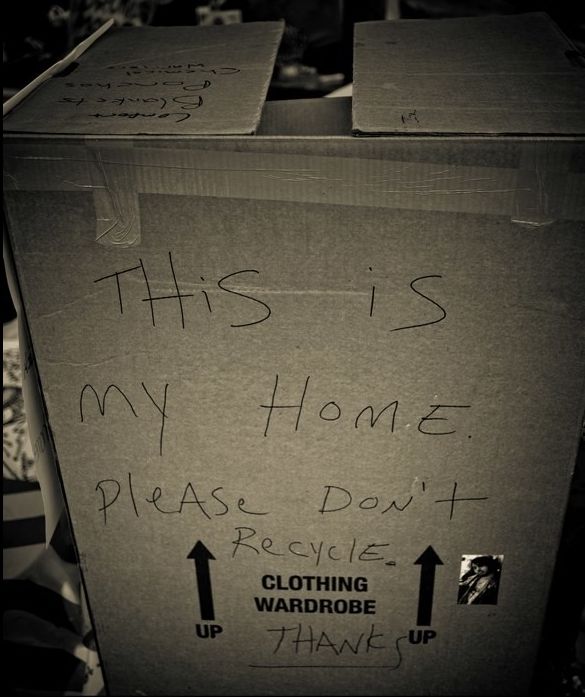 Content
Blankets
Ponchos
Chemical
Warmers
THiS iS
MY HOME.
PleASe DON't
RecYcLE.
CLOTHING
WARDROBE
UP
UP
THANKS